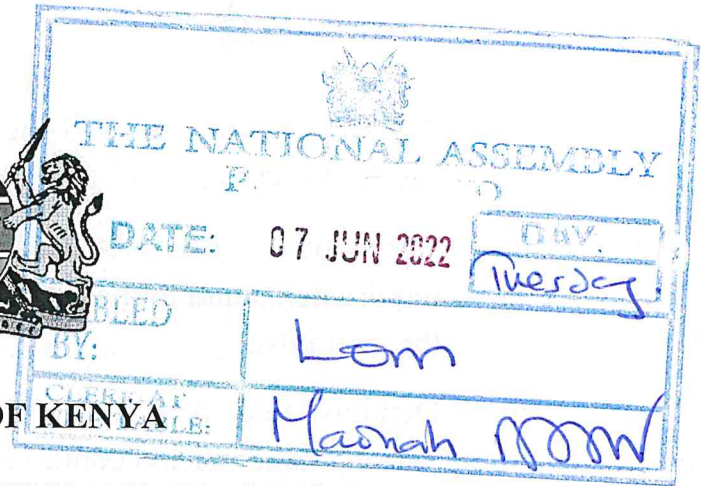 THE NATIONAL ASSEMBLY
DATE: 07 JUN 2022
DAY.
Tuesday
BLED
BY:
Lom
CLERK AT
LE:
OF KENYA